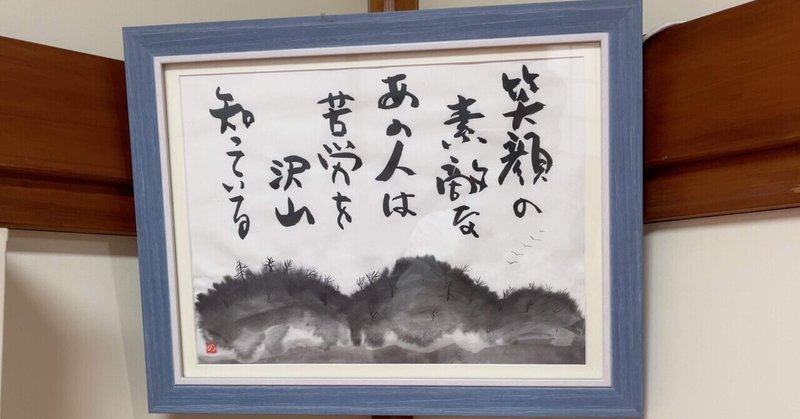 笑顔の
素敵な
あの人は
苦労を
沢山
知っている
の